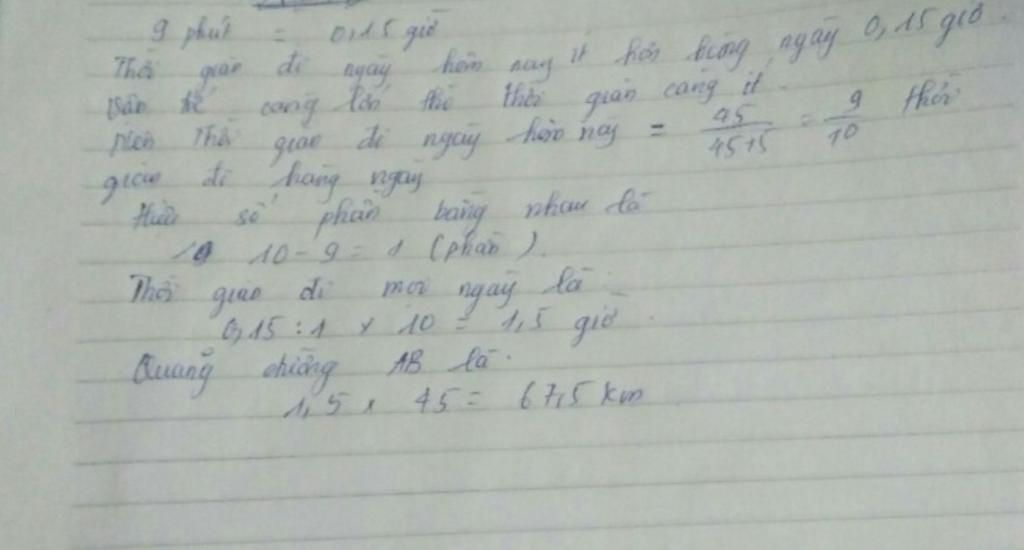 9 phút = 0,15 giờ
Thời gian đi ngày hôm nay ít hơn hằng ngày 0,15 giờ.
Vận tốc càng lớn thì thời gian càng ít.
Nên thời gian đi ngày hôm nay = 45/45+5 = 9/10 thời
gian đi hàng ngày
Hiệu số phần bằng nhau là
10 - 9 = 1 (phần).
Thời gian đi mọi ngày là
0,15 : 1 x 10 = 1,5 giờ.
Quãng đường AB là.
1,5 x 45 = 67,5 km